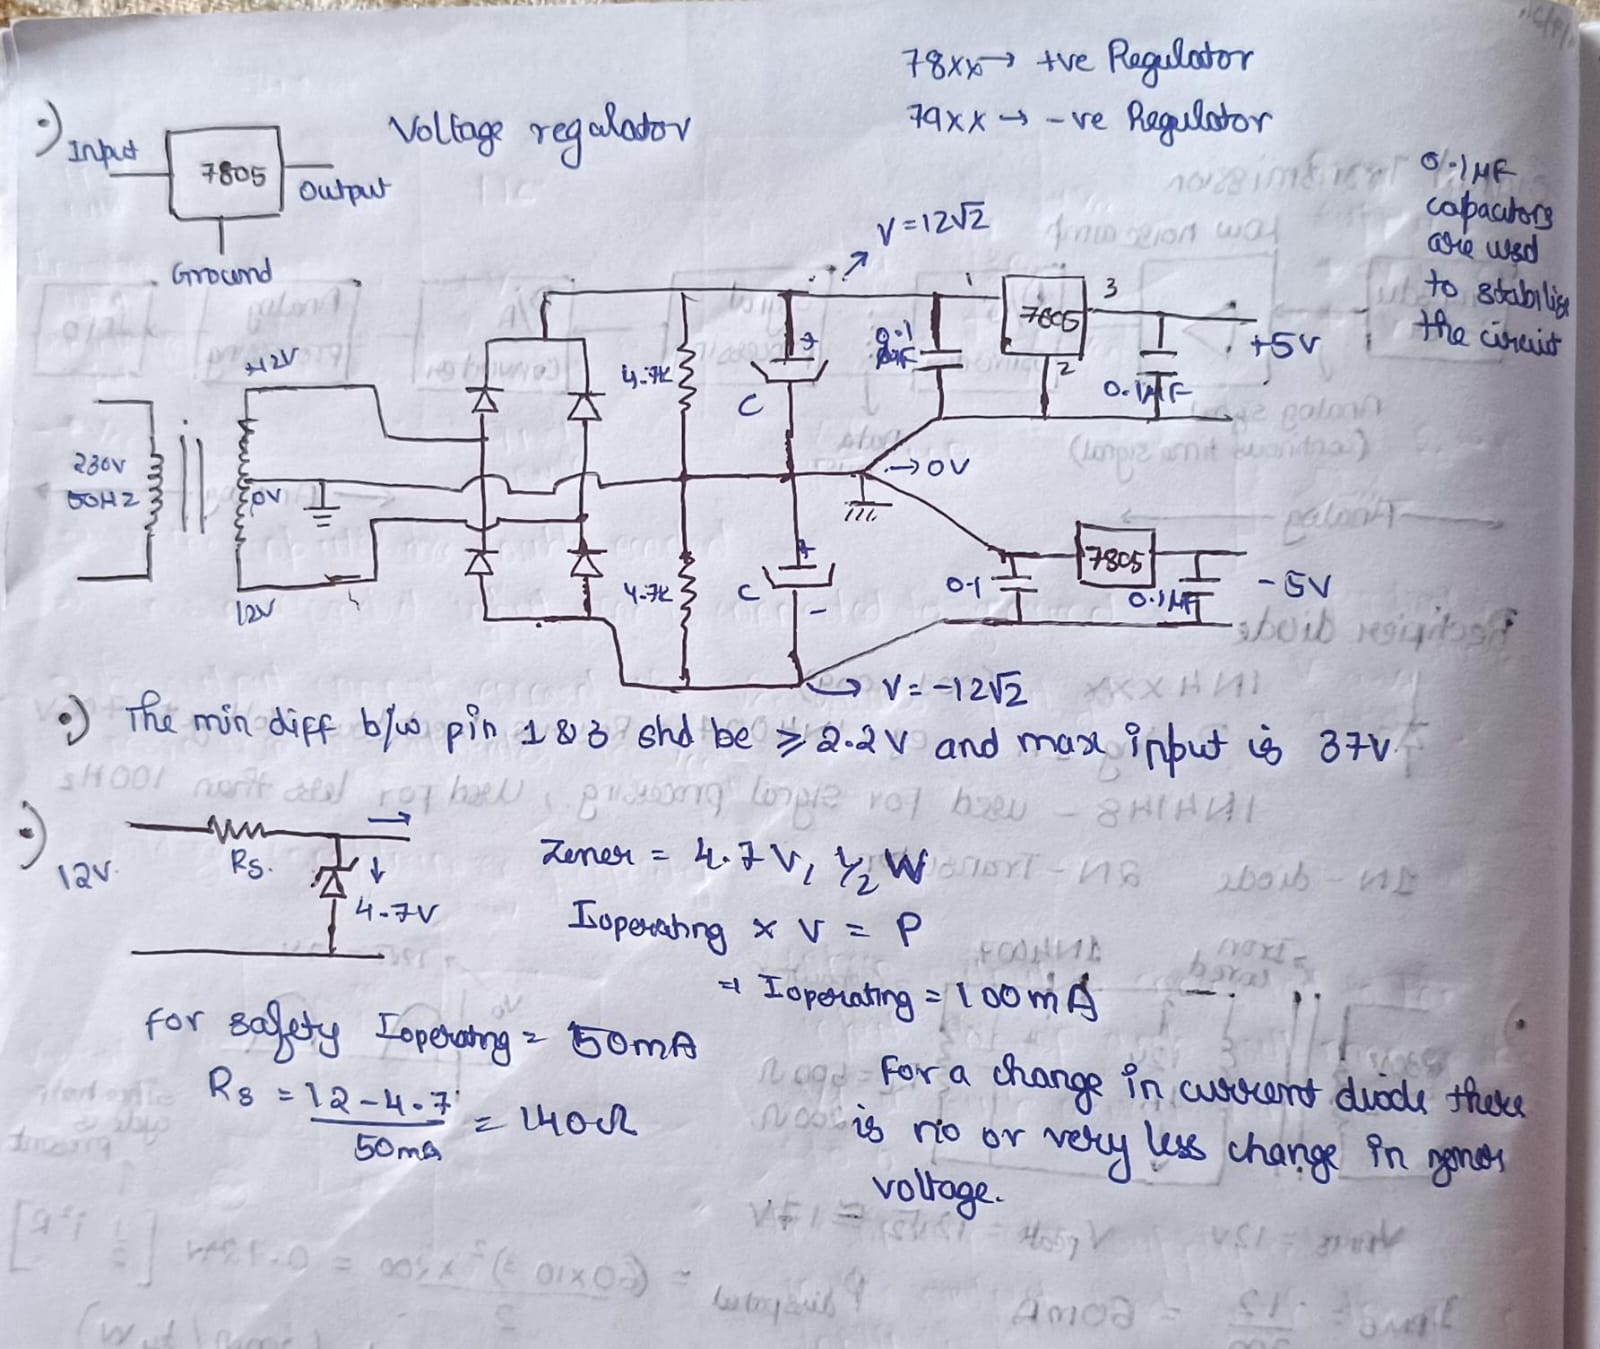 78xx → +ve Regulator
79xx → -ve Regulator
•) Input
7805
Output
Ground
Voltage regulator
0.1μF
capacitors
are used
to stabilise
the circuit
V = 12√2
1
7805
3
2
+5V
0.1
μF
0.1μF
+12V
230V
50HZ
0V
12V
4.7K
+
C
→ 0V
4.7K
+
C
-
0.1
7805
0.1μF
-5V
→ V = -12√2
•) The min diff b/w pin 1 & 3 shd be ≥ 2.2V and max input is 37V.
•)
12V.
Rs.
4.7V
Zener = 4.7V, 1/2 W
Ioperating x V = P
⇒ Ioperating = 100mA
For safety Ioperatng = 50mA
Rs = 12-4.7 / 50mA = 140Ω
For a change in current diode there
is no or very less change in zener
voltage.